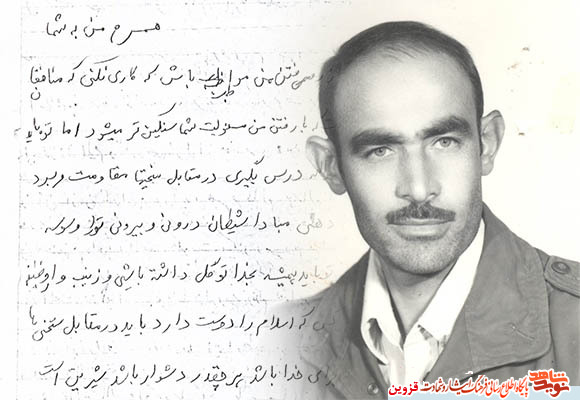 همسرم من به شما
رفتن من مواظب باش که کاری نکنی که منافقان
با رفتن من مسئولیت شما سنگین تر میشود اما تو باید
درس بگیری در مقابل سختیها مقاومت و صبر
مبادا شیطان درونی و بیرونی تو را وسوسه
باید همیشه بخدا توکل داشته باشی و زینب وار وظیفه
که اسلام را دوست دارد باید در مقابل سختی ها
برای خدا باشد هر چقدر دشوار باشد شیرین است
نوید شاهد
پایگاه اطلاع رسانی فرهنگ ایثار و شهادت قزوین